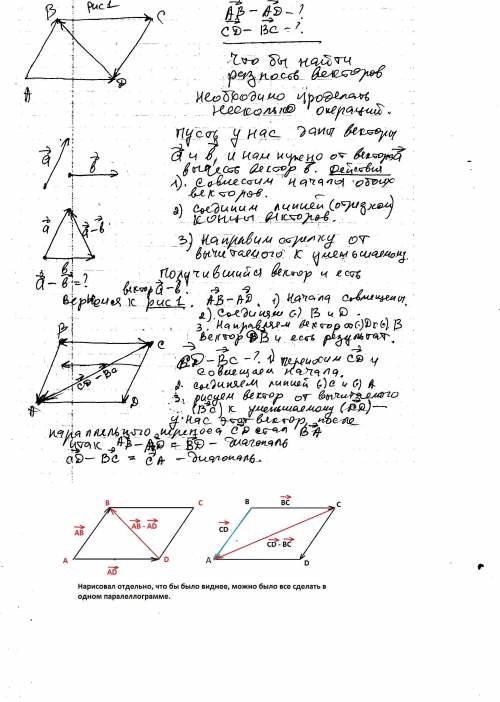 Рис 1
B
C
A
D
AB - AD - ?
CD - BC = ?
Что бы найти
разность векторов
необходимо проделать
несколько операций.
Пусть у нас даны вектора
a и b, и нам нужно от вектора a
вычесть вектор b. Действия
1). Совместим начала обоих
векторов.
2) Соединим линией (отрезком)
концы векторов.
3) Направим стрелку от
вычитаемого к уменьшаемому
a
b
a
a - b
b
a - b = ?
Получившийся вектор и есть
вектор a - b.
Вернемся к рис 1. AB - AD. 1) Начала совмещены.
2). Соединяем (.) B и D.
3. Направляем вектор от (.) D к (.) B
Вектор DB и есть результат.
B
C
A
D
CD - BC
CD - BC - ? 1) Переносим CD и
совмещаем начала.
2. соединяем линией (.) C и (.) A
3. рисуем вектор от вычитаемого
(BC) к уменьшаемому (CD) —
у нас этот вектор после
параллельного переноса CD стал BA
Итак AB - AD = BD - диагональ
CD - BC = CA - диагональ.
B
C
AB
AB - AD
A
D
AD
B
BC
C
CD
CD - BC
A
D
Нарисовал отдельно, что бы было виднее, можно было все сделать в
одном паралеллограмме.